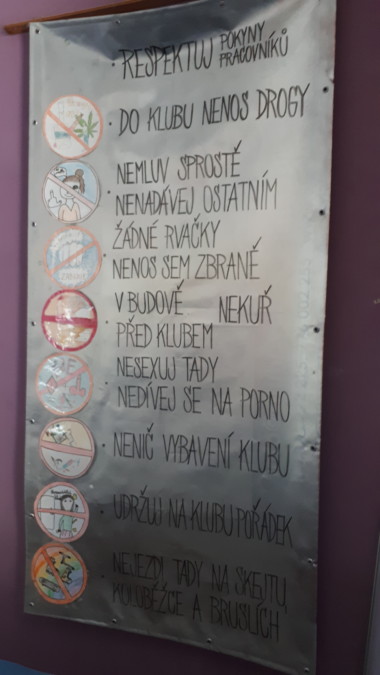 • RESPEKTUJ POKYNY PRACOVNÍKŮ
• DO KLUBU NENOS DROGY
• NEMLUV SPROSTĚ
NENADÁVEJ OSTATNÍM
• ŽÁDNÉ RVAČKY
NENOS SEM ZBRANĚ
• V BUDOVĚ NEKUŘ
PŘED KLUBEM
• NESEXUJ TADY
NEDÍVEJ SE NA PORNO
• NENIČ VYBAVENÍ KLUBU
• UDRŽUJ NA KLUBU POŘÁDEK
• NEJEZDI TADY NA SKEJTU,
KOLOBĚŽCE A BRUSLÍCH